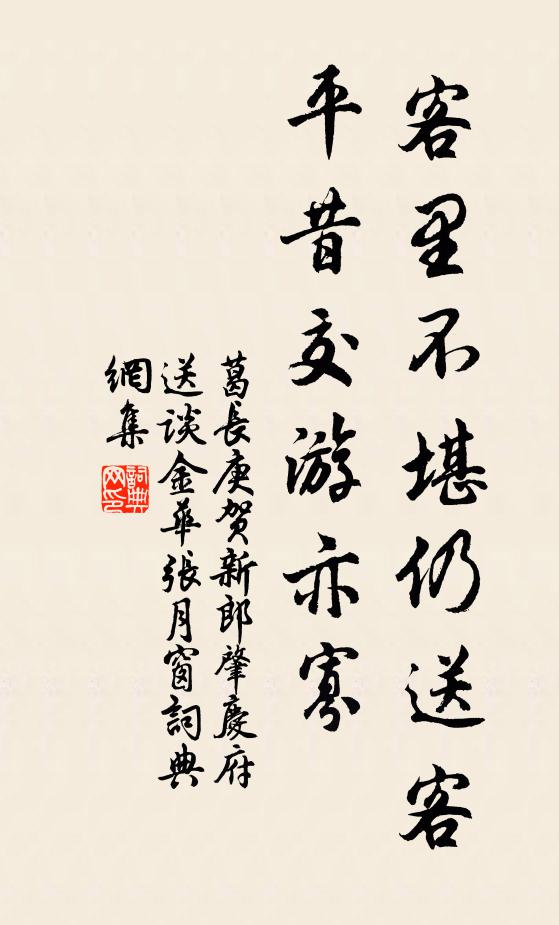 客里不堪仍送客
平昔交游亦寡
葛長庚賀新郎肇慶府
送談金華張月窗詞典
網集
詞典網印